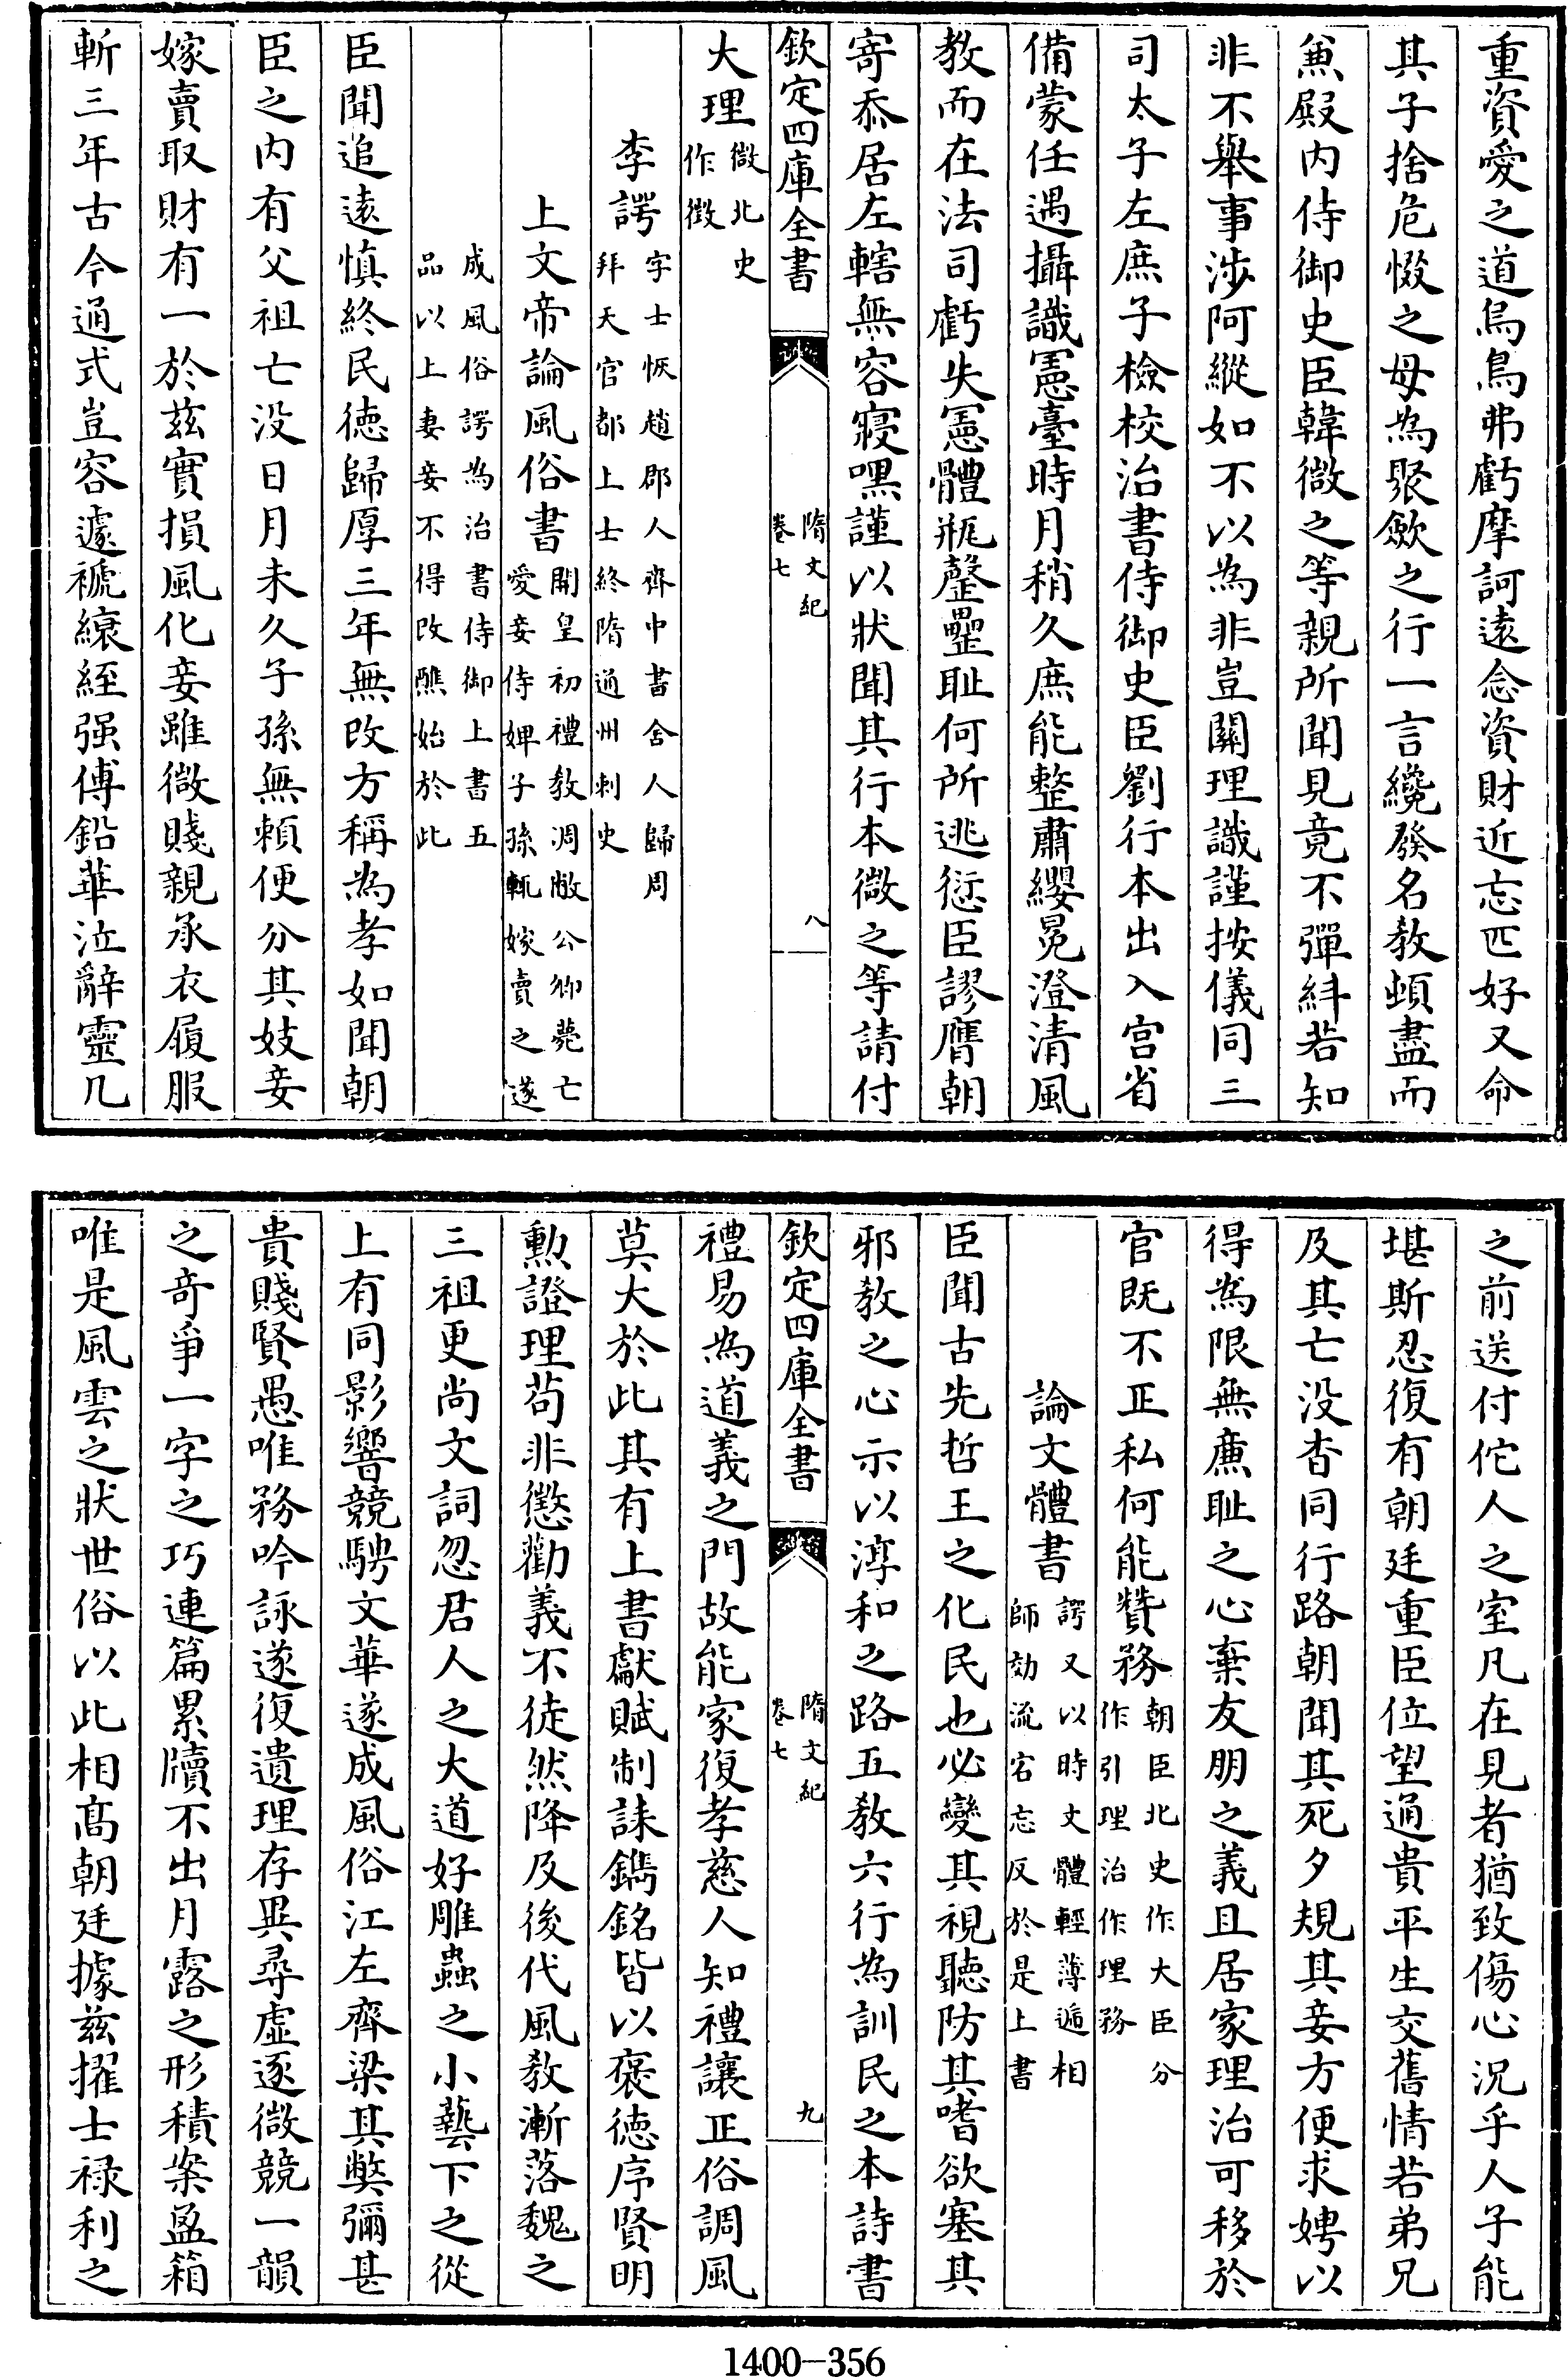 重資愛之道烏鳥弗虧摩訶遠念資財近忘匹好又命
其子捨危惙之母為聚斂之行一言纔發名教頓盡而
兼殿内侍御史臣韓微之等親所聞見竟不彈糾若知
非不舉事涉阿縱如不以為非豈關理識謹按儀同三
司太子左庶子檢校治書侍御史臣劉行本出入宫省
備蒙任遇攝識憲臺時月稍久庶能整肅纓冕澄清風
教而在法司虧失憲體瓶罄罍恥何所逃愆臣謬膺朝
寄忝居左轄無容寢嘿謹以狀聞其行本微之等請付
欽定四庫全書
隋文紀
卷七
八
大理微北史
作徴
李諤字士恢趙郡人齊中書舍人歸周
拜天官都上士終隋通州刺史
上文帝論風俗書開皇初禮教凋敝公卿薨亡
愛妾侍婢子孫輒嫁賣之遂
成風俗諤為治書侍御上書五
品以上妻妾不得改醮始於此
臣聞追遠慎終民徳歸厚三年無改方稱為孝如聞朝
臣之内有父祖亡没日月未久子孫無頼便分其妓妾
嫁賣取財有一於兹實損風化妾雖微賤親承衣履服
斬三年古今通式豈容遽褫縗絰强傅鉛華泣辭靈几
之前送付佗人之室凡在見者猶致傷心況乎人子能
堪斯忍復有朝廷重臣位望通貴平生交舊情若弟兄
及其亡没杳同行路朝聞其死夕規其妾方便求娉以
得為限無㢘恥之心棄友朋之義且居家理治可移於
官既不正私何能贊務朝臣北史作大臣分
作引理治作理務
論文體書諤又以時文體輕薄遞相
師効流宕忘反於是上書
臣聞古先哲王之化民也必變其視聽防其嗜欲塞其
邪教之心示以淳和之路五教六行為訓民之本詩書
欽定四庫全書
隋文紀
卷七
九
禮易為道義之門故能家復孝慈人知禮讓正俗調風
莫大於此其有上書獻賦制誄鐫銘皆以褒徳序賢明
勲證理苟非懲勸義不徒然降及後代風教漸落魏之
三祖更尚文詞忽君人之大道好雕蟲之小藝下之從
上有同影響競騁文華遂成風俗江左齊梁其弊彌甚
貴賤賢愚唯務吟詠遂復遺理存異尋虚逐微競一韻
之奇爭一字之巧連篇累牘不出月露之形積案盈箱
唯是風雲之狀世俗以此相髙朝廷據兹擢士禄利之
1400-356